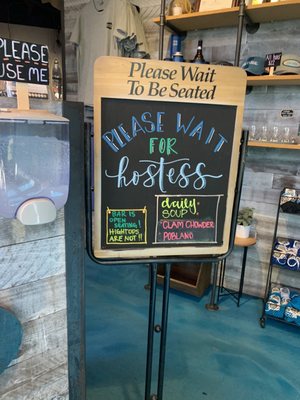 PLEASE
USE ME
Please Wait
To Be Seated
PLEASE WAIT
FOR
hostess
BAR IS
OPEN
SEATING!
HIGHTOPS
ARE NOT!!
daily
SOUP
*CLAM CHOWDER
*POBLANO